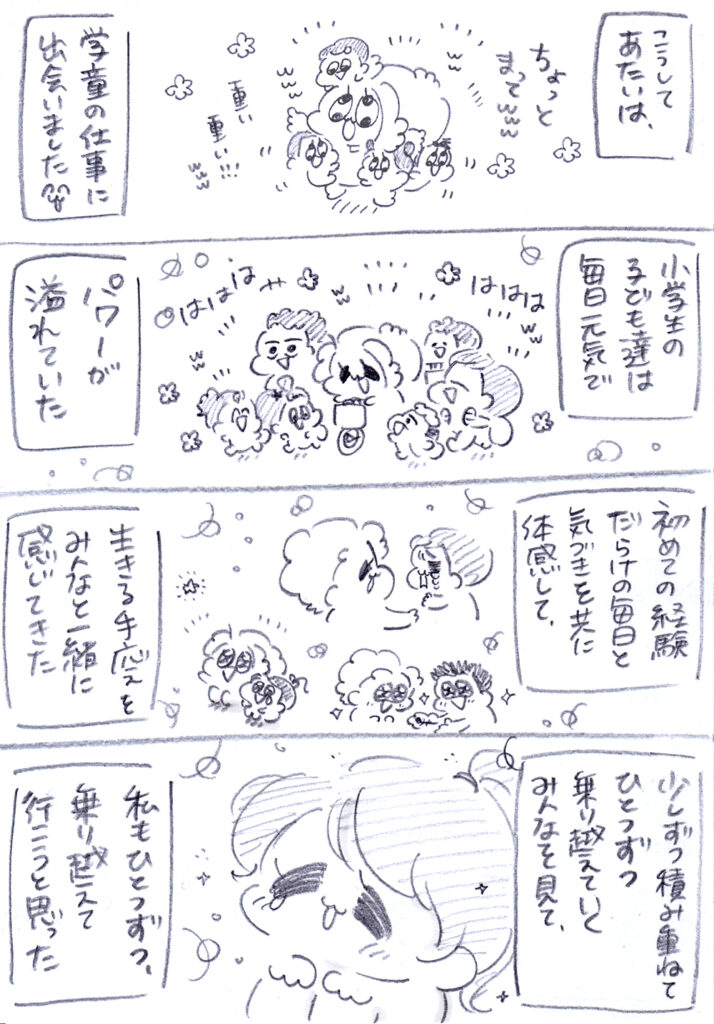 こうして
あたいは、
ちょっと
まってwww
重い
重い!!!
www
学童の仕事に
出会いました
小学生の
子ども達は
毎日元気で
ははは
ははは
パワーが
溢れていた
初めての経験
だらけの毎日と
気づきを共に
体感して、
生きる手応えを
みんなと一緒に
感じてきた
少しずつ積み重ねて
ひとつずつ
乗り越えていく
みんなを見て、
私もひとつずつ、
乗り越えて
行こうと思った